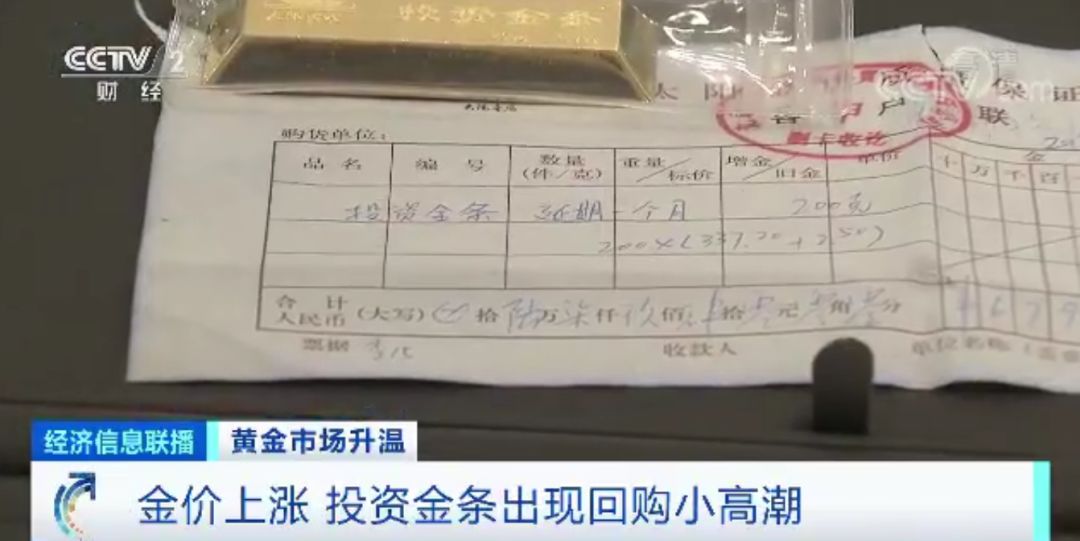 CCTV 2
财经
投资金条
太阳
保证
联
客户
刷卡收讫
购货单位：
品名 编号 数量(件/克) 重量/标价 增金/旧金 单价 金
十万千百
投资金条 延期一个月 200克
200×(337.20+2.50)
合计人民币(大写) 拾陆万柒仟玖佰 拾 元 角 分 679
票据 收款人 单位名称(盖章
经济信息联播 黄金市场升温
金价上涨 投资金条出现回购小高潮